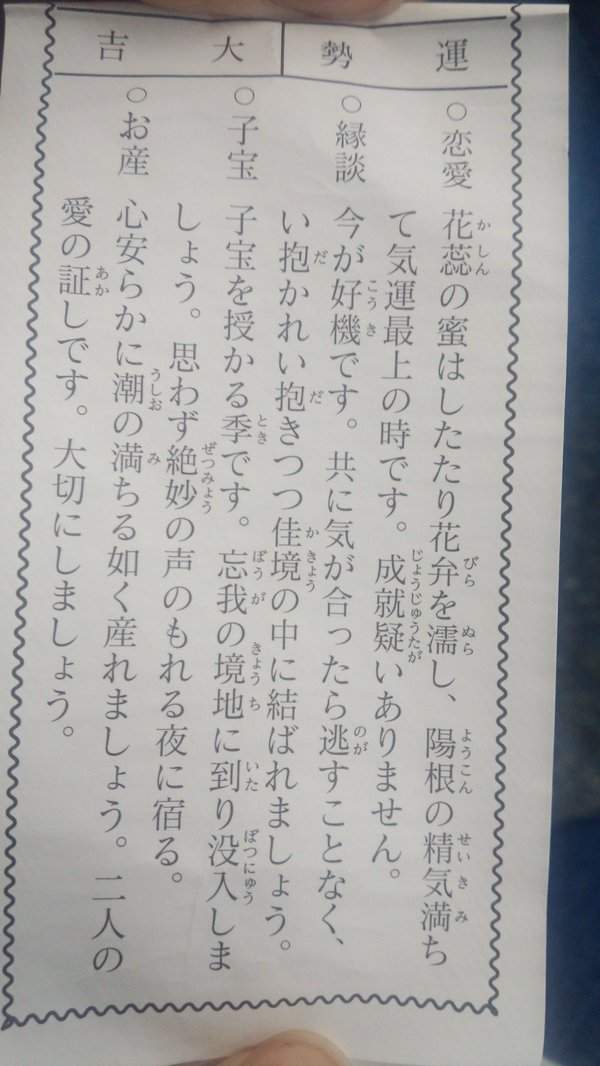 運勢 大吉
○恋愛 花蕊の蜜はしたたり花弁を濡し、陽根の精気満ち
て気運最上の時です。成就疑いありません。
○縁談 今が好機です。共に気が合ったら逃すことなく、
い抱かれい抱きつつ佳境の中に結ばれましょう。
○子宝 子宝を授かる季です。忘我の境地に到り没入しま
しょう。思わず絶妙の声のもれる夜に宿る。
○お産 心安らかに潮の満ちる如く産れましょう。二人の
愛の証しです。大切にしましょう。